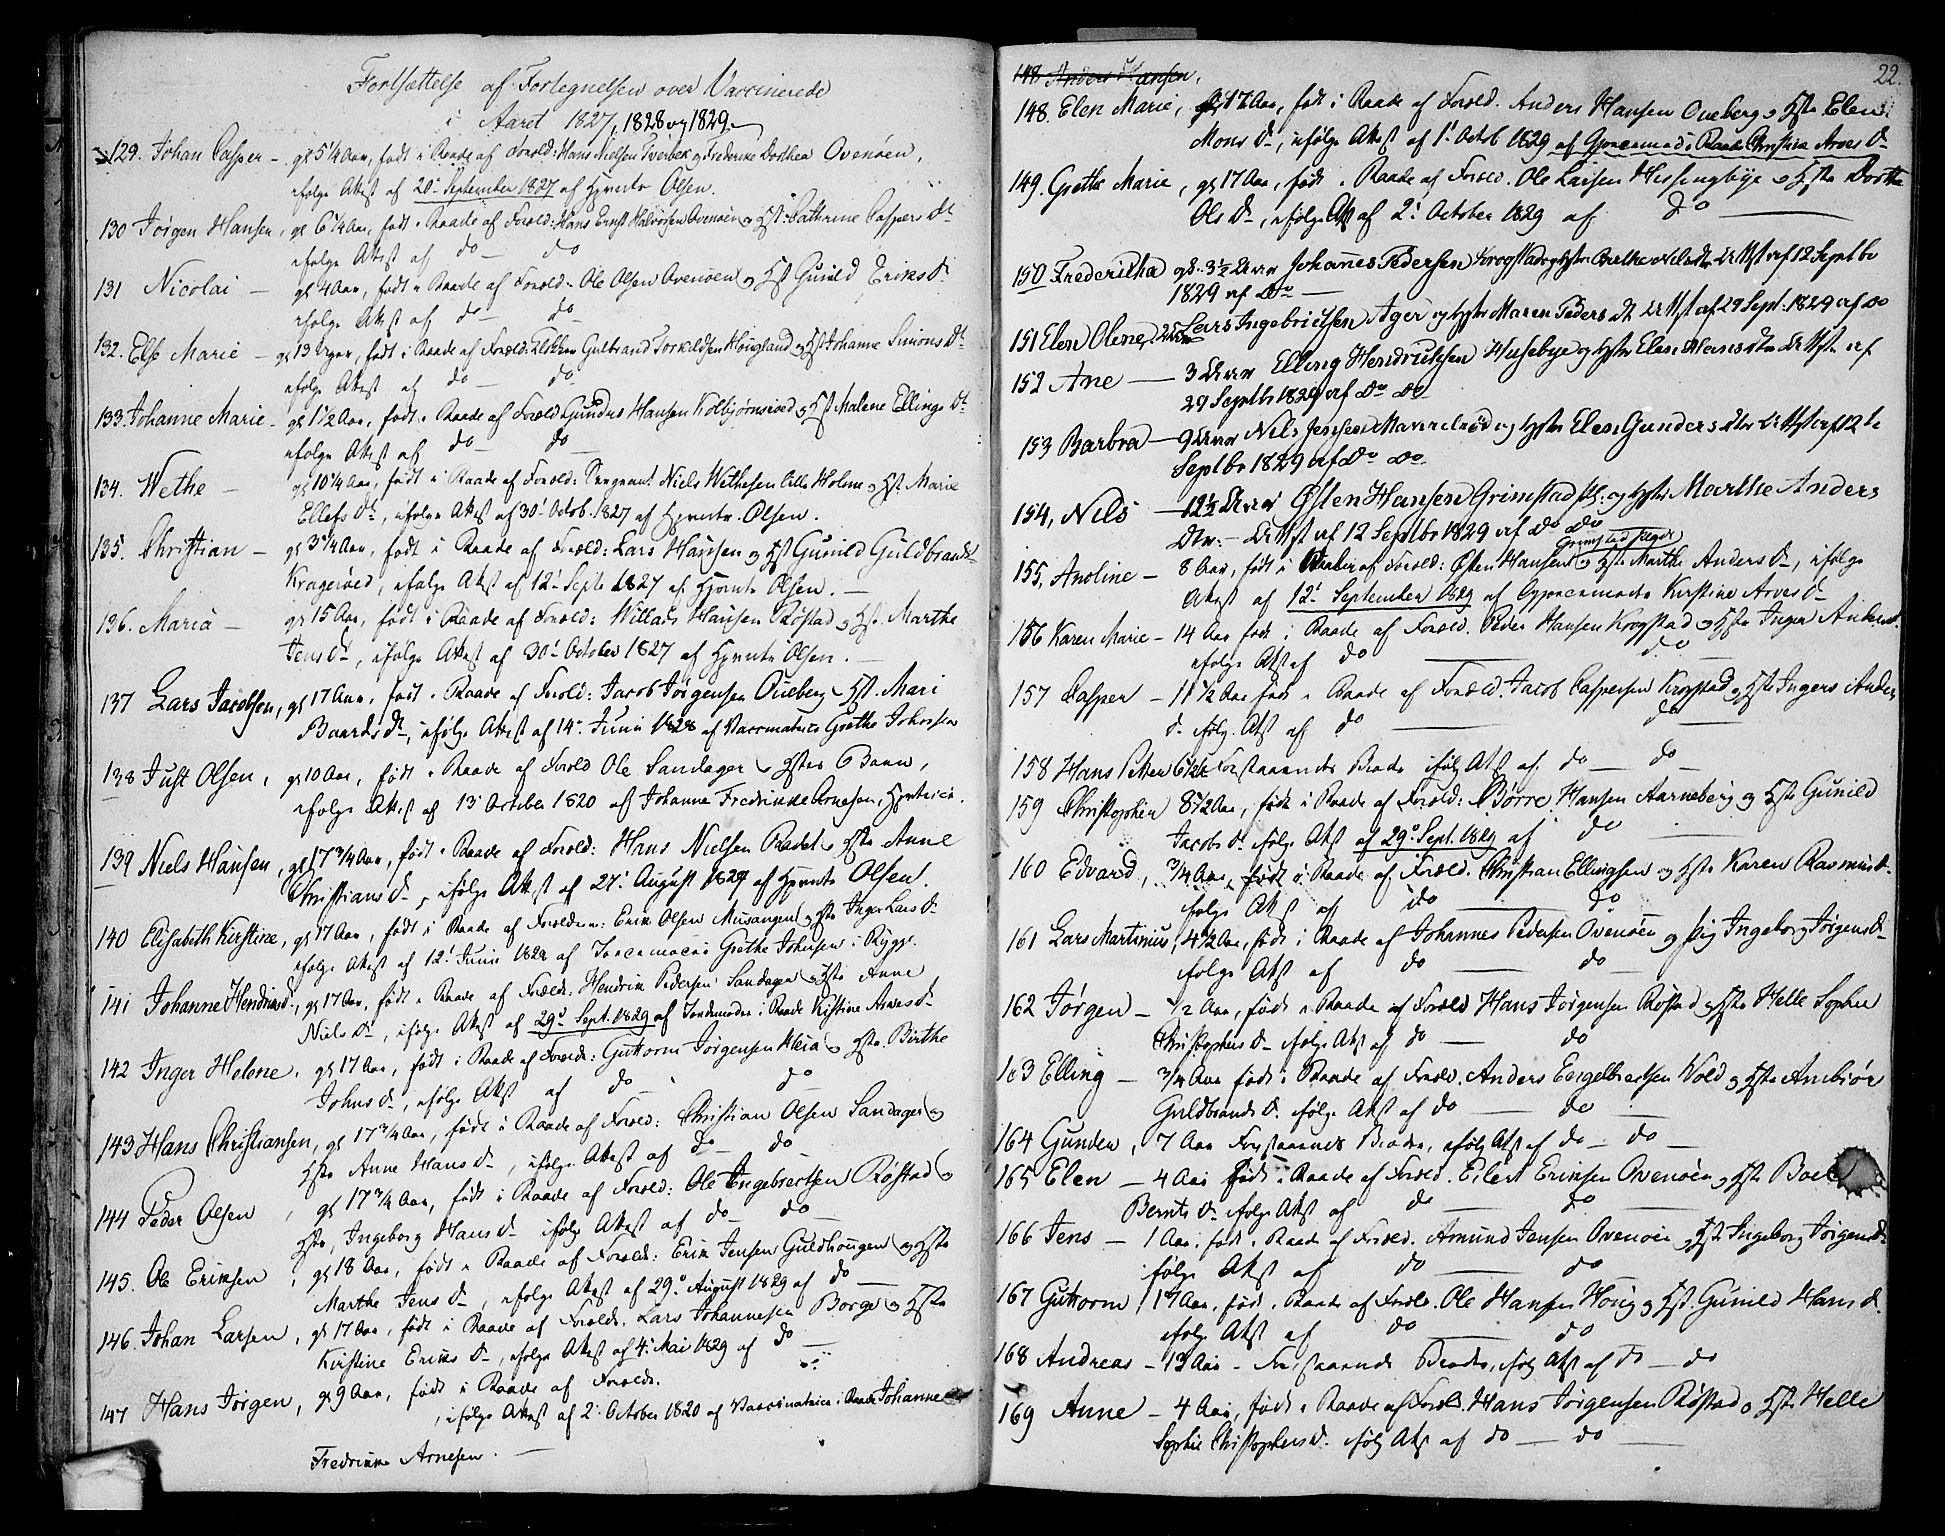 Fortsættelse af Fortegnelsen over Vaccinerede
i Aaret 1827, 1828 og 1829.
129. Johan Casper - gl 5 1/4 Aar, født i Raade af Foræld: Hans Nielsen Tverbek og Frederike Dorthea Ovenøen,
ifølge Attest af 20' September 1827 af Hr. Olsen.
130 Jørgen Hansen, gl 6 1/4 Aar, født i Raade af Foræld: Hans Ernst Halvorsen Ovenøen og Hst: Cathrine Caspers Dr
ifølge Attest af do do
131 Nicolai - gl 4 Aar, født i Raade af Foræld: Ole Olsen Ovenøen og Hst Gunild Eriks Dr
ifølge Attest af do do
132. Else Marie - gl 13 Uger, født i Raade af Foræld: Gulbrand Torkildsen Hougland og Hst Johanne Simons Dr
ifølge Attest af do do
133. Johanne Marie - gl 1 1/2 Aar, født i Raade af Foræld Gunder Hansen Kolbjørnsrød og Hst Malene Ellings Dr
ifølge Attest af do do
134. Wethe - gl 10 1/4 Aar, født i Raade af Foræld: Sergeant Niels Wethesen Lille Holme og Hst. Marie
Ellefs Dr, ifølge Attest af 30' Octob. 1827 af Olsen.
135. Christian - gl 3 1/4 Aar, født i Raade af Foræld: Lars Hansen og Hst Gunild Guldbrands
Kragerød, ifølge Attest af 12' Septr 1827 af Olsen.
136. Maria - gl 15 Aar, født i Raade af Foræld: Willads Hansen Røstad og Hst. Marthe
Jens Dr, ifølge Attest af 30' October 1827 af Olsen.
137 Lars Jacobsen, gl 17 Aar, født i Raade af Foræld: Jacob Jørgensen Oueberg og Hst. Mari
Baards Dr, ifølge Attest af 14' Junii 1828 af Grethe Johnsen
138 Just Olsen, gl 10 Aar, født i Raade af Foræld Ole Sandager og Hstru Baan,
ifølge Attest af 13' October 1820 af Johanne Fredrikke Arnesen,
139 Niels Hansen, gl 17 3/4 Aar, født i Raade af Foræld: Hans Nielsen Raadet og Hstr Anne
Christians Dr, ifølge Attest af 27' August 1827 af Olsen.
140 Elisabeth Kirstine, gl 17 Aar, født i Raade af Forældrene: Erik Olsen Musangen og Hstr Inger Lars Dr
ifølge Attest af 12' Junii 1828 af Grethe Johnsen i Rygge.
141 Johanne Hendriks D., gl 17 Aar, født i Raade af Foræld: Hendrik Pedersen Sandager og Hstr Anne
Niels Dr, ifølge Attest af 29' Sept. 1829 af Jordemoder i Raade Kistine Arves Dr
142 Inger Helene, gl 17 Aar, født i Raade af Foræld: Guttorm Jørgensen Kleia og Hstr. Birthe
Johns Dr, ifølge Attst af do do
143 Hans Christiansen, gl 17 3/4 Aar, født i Raade af Foræld: Christian Olsen Sandager og
Hstr Anne Hans Dr, ifølge Attest af do do
144 Peder Olsen, gl 17 3/4 Aar, født i Raade af Foræld: Ole Ingebretsen Røstad og
Hstr, Ingeborg Hans Dr ifølge Attest af do do
145. Ole Eriksen, gl 18 Aar, født i Raade af Foræld: Erik Jensen Guldhougen og Hstr
Marthe Jens Dr, ifølge Attest af 29' August 1829 af do
146. Johan Larsen, gl 17 Aar, født i Raade af Foræld: Lars Johannesen Borge og Hstr
Kirstine Eriks Dr, ifølge Attest af 4' Mai 1829 af do
147 Hans Jørgen, gl 9 Aar, født i Raade af Foræld.
, ifølge Attest af 2' October 1820 af Vaccinatrice i Raade Johanne
Fredrikke Arnesen.
22.
148 Anders Hansen,
148. Elen Marie, gl 17 Aar, født i Raade af Foræld. Anders Hansen Oueberg og Hstr Elen
Mons Dr, ifølge Attest af 1' Octob 1829 af Gjordemod. i Raade Christine Arves Dr
149. Grethe Marie, gl 17 Aar, født i Raade af Foræld. Ole Larsen Hissingbye og Hstr Dorthe
Ols Dr, ifølge Attst af 2' October 1829 af do
150 Frederikha gl. 3 1/2 Aar Johannes Pedersen Krogstad og hstr Nilsdtr Attst af 12 Septbr
1829 af do
151 Elen Olene, Lars Ingebrietsen Ager og hstr Maren Peders dtr Attst af 29 Sept. 1829 af do
152 Ane - 3 Aar Elling Hendrichsen Husebye og hstr Elen Hansdtr Attst af
29 Septbr 1829 af do do
153 Barbra - 9 Aar Nils Jensen og hstr Elen Gunders dtr Attst af 12te
Septbr 1829 af do do.
154, Nils - 12 1/2 Aar Østen Hansen Grimstad og hstr Marthe Anders
Dtr. - Attst af 12 Septbr 1829 af do do
155, Anoline - 8 Aar, født i af Foræld: Østen Hansen Grimstad og Hstr Marthe Anders Dr, ifølge
Attest af 12' September 1829 af Gjordemoder Kirstine Arves Dr
156 Karen Marie - 14 Aar født i Raade af Foræld. Peder Hansen Krogstad og Hstr Inger Anders D.
ifølge Attst af do do
157 Casper - 11 1/2 Aar født i Raade af Foræld. Jacob Caspersen Krogstad og Hstr Ingers Anders
D. ifølg. Attst af do do
158 Hans Petter 6 1/2 Aar Forstaaendes Broder ifølg Attst af do do
159 Christopher 8 1/2 Aar, født i Raade af Foræld: Børre Hansen Aarneberg og Hstr Gunild
Jacobs Dr ifølge Attst af 29' Sept. 1829 af do
160 Edvard, 3/4 Aar, født i Raade af Foræld. Christian Ellingsen og Hstr Karen Rasmus D.
ifølge Attst af do do
161 Lars Martinius, 4 1/2 Aar, født i Raade af Johannes Pedersen Ovenøen og Pig Ingeborg Jørgens Dr
ifølge Attst af do do
162 Jørgen - 1/2 Aar, født i Raade af Foræld Hans Jørgensen Røstad og Hstr Helle Sophie
Christophers Dr ifølge Attst af do do
163 Elling - 3/4 Aar født i Raade af Foræld. Anders Engelbretsen Vold og Hstr Anbiør
Guldbrands D. ifølge Attst af do do
164 Gunder, 7 Aar Forstaaendes Broder, ifølg Attst af do do
165 Elen - 4 Aar født i Raade af Foræld. Eilert Eriksen Ovenøen og Hstr Boel
Bernts Dr ifølge Attst af do do
166 Jens - 1 Aar, født i Raade af Foræld. Amund Jensen Ovenøen og Hstr Ingeborg Jørgens D.
ifølge Attst af do do
167 Guttorm, 17 Aar, født i Raade af Foræld. Ole Hansen Houg og Hst. Gunild Hans D.
ifølge Attst af do do
168 Andreas - 13 Aar - Forstaaende Broder, ifølg Attst af do do
169 Anne - 4 Aar, født i Raade af Foræld. Hans Jørgensen Røstad og Hstr Helle
Sophie Christophers D. ifølg Attst af do do